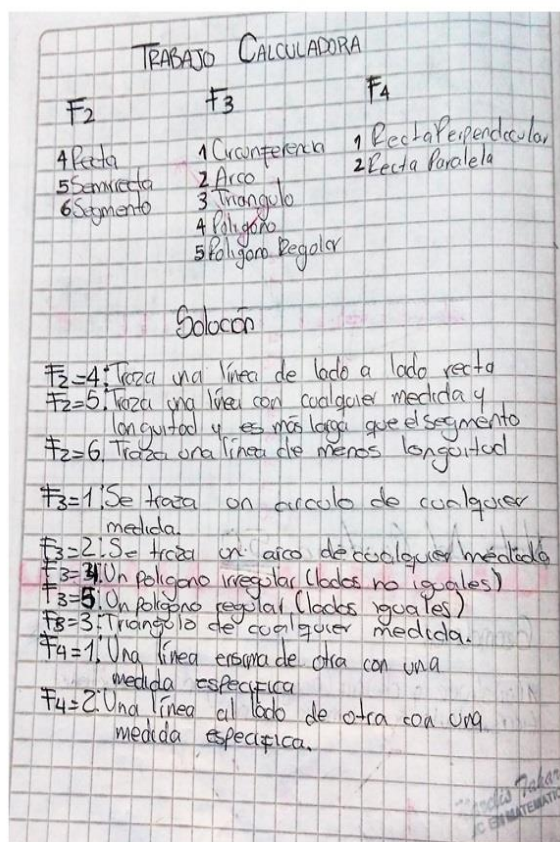 TRABAJO CALCULADORA
F2
4 Recta
5 Semirrecta
6 Segmento
F3
1 Circunferencia
2 Arco
3 Triangulo
4 Poligono
5 Poligono Regular
F4
1 Recta Perpendicular
2 Recta Paralela
Solución
F2=4: Traza una línea de lado a lado recta
F2=5: Traza una línea con cualquier medida y
longuitud y es más larga que el segmento
F2=6. Traza una línea de menos longuitud
F3=1: Se traza un circulo de cualquier
medida.
F3=2: Se traza un arco de cualquier medida
F3=4: Un poligono irregular (lados no iguales)
F3=5: Un poligono regular (lados iguales)
F3=3: Triangulo de cualquier medida.
F4=1: Una línea ensima de otra con una
medida especifica
F4=2: Una línea al lado de otra con una
medida especifica.
EN MATEMATIC